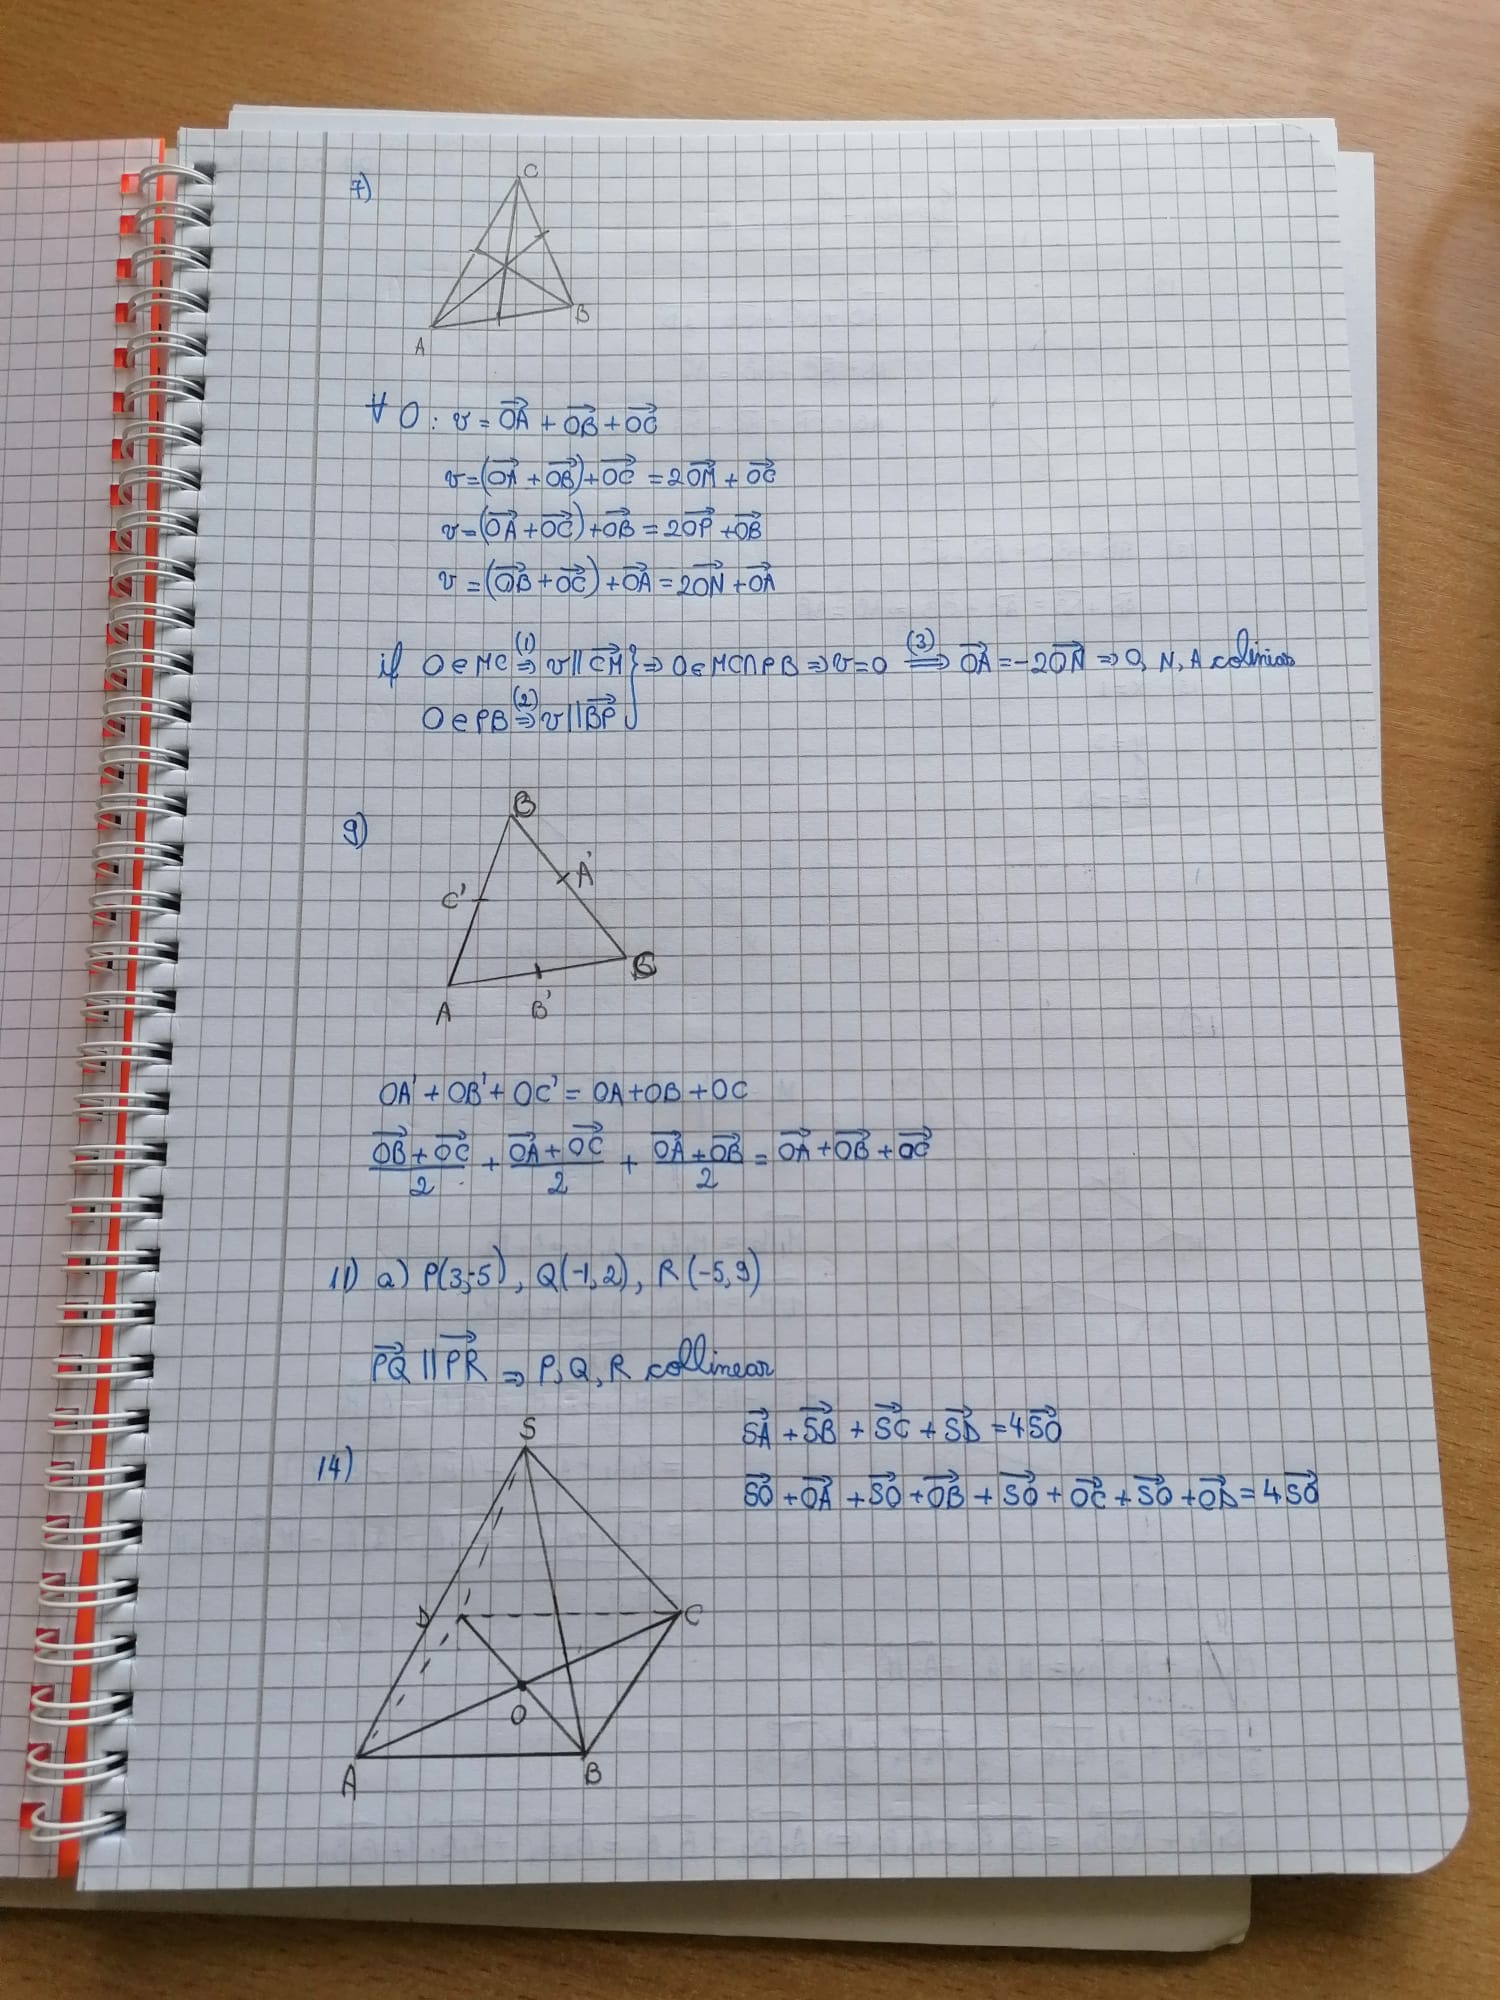 7)
C
B
A
∀ O: v = OA + OB + OC
v = (OA + OB) + OC = 2OM + OC
v = (OA + OC) + OB = 2OP + OB
v = (OB + OC) + OA = 2ON + OA
if O ∈ MC (1)⇒ v || CM } ⇒ O ∈ MC ∩ PB ⇒ v = 0 (3)⟹ OA = -2ON ⇒ O, N, A coliniar
O ∈ PB (2)⇒ v || BP
9)
B
A'
C'
C
A
B'
OA' + OB' + OC' = OA + OB + OC
(OB + OC)/2 + (OA + OC)/2 + (OA + OB)/2 = OA + OB + OC
11) a) P(3,-5), Q(-1,2), R(-5,9)
PQ || PR ⇒ P, Q, R collinear
14)
S
D
C
O
A
B
SA + SB + SC + SD = 4SO
SO + OA + SO + OB + SO + OC + SO + OD = 4SO